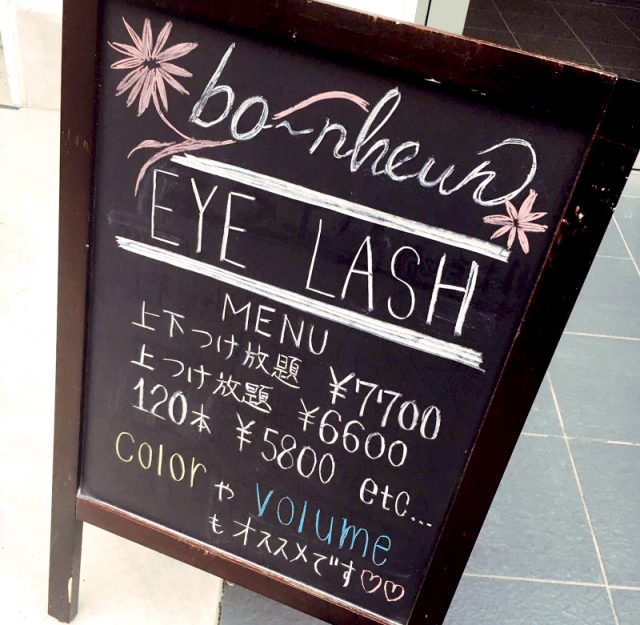 bo~nheur
EYE LASH
MENU
上下つけ放題 ¥7700
上つけ放題 ¥6600
120本 ¥5800 etc...
color や volume
も オススメです♡♡